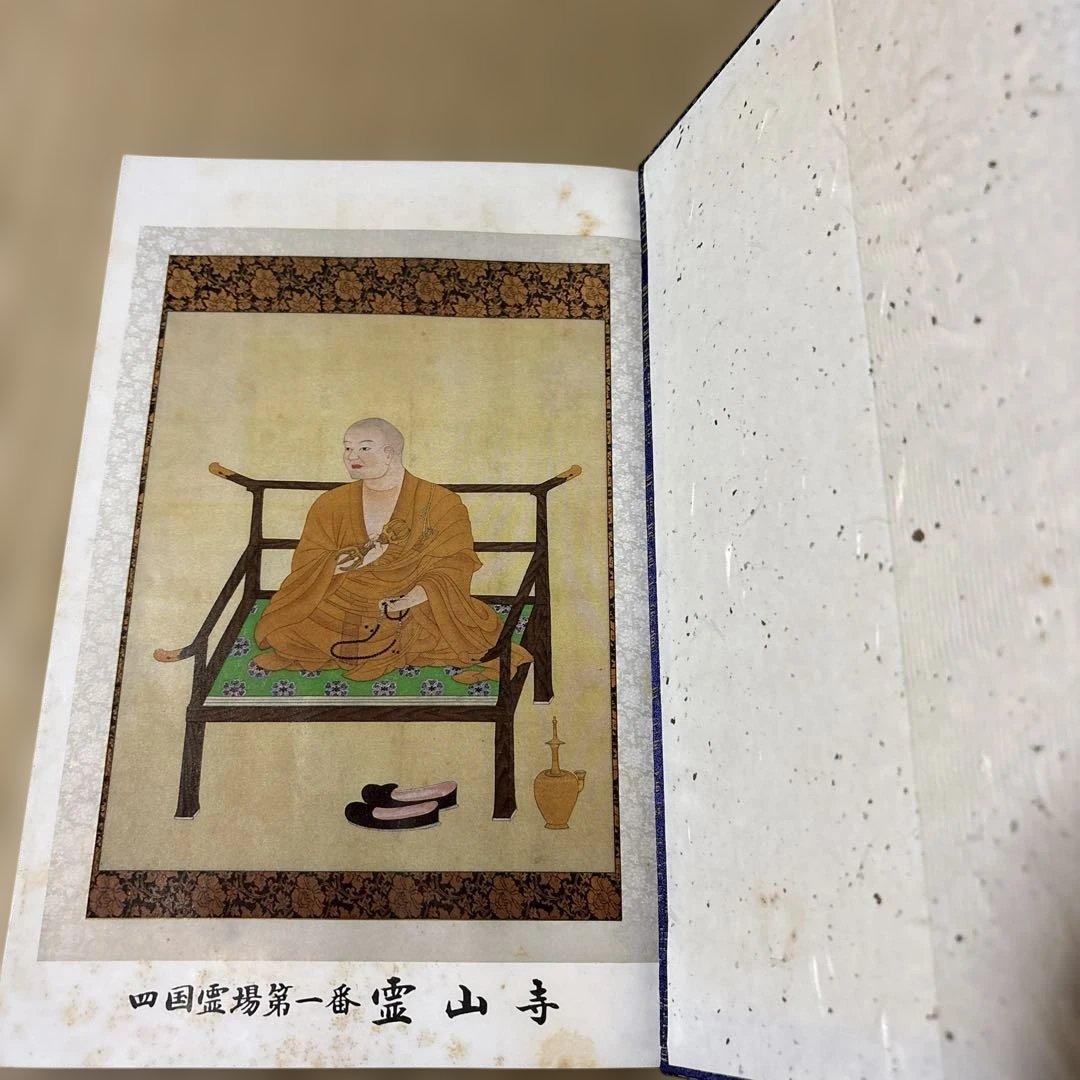 四国霊場第一番 霊山寺